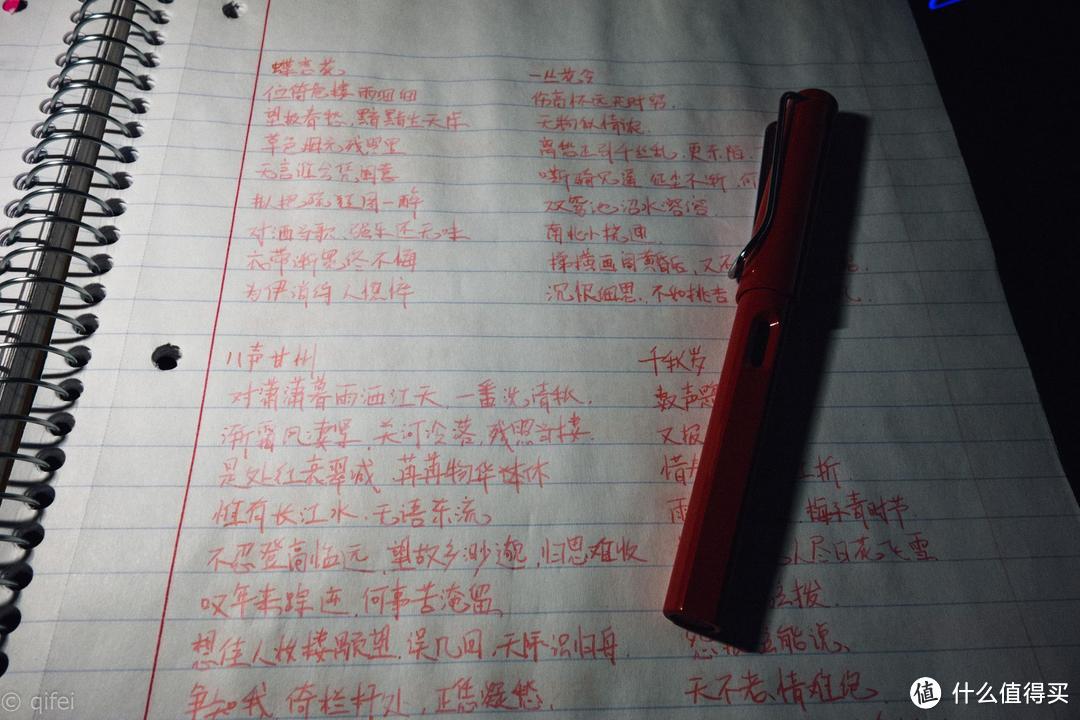 蝶恋花
伫倚危楼 风细细
望极春愁,黯黯生天际
草色烟光残照里
无言谁会凭阑意
拟把疏狂图一醉
对酒当歌、强乐还无味
衣带渐宽终不悔
为伊消得人憔悴
一丛花令
伤高怀远几时穷,
无物似情浓
离愁正引千丝乱,更东陌
嘶骑 遥 征尘不断,何
双鸳池沼水溶溶
南北小桡通
梯横画阁黄昏后,又
沉恨细思,不如桃杏
八声甘州
对潇潇暮雨洒江天,一番洗清秋.
渐霜风凄紧,关河冷落,残照当楼.
是处红衰翠减,苒苒物华休休
惟有长江水,无语东流
不忍登高临远,望故乡渺邈,归思难收
叹年来踪迹,何事苦淹留
想佳人妆楼颙望,误几回,天际识归舟.
争知我,倚栏杆处,正恁凝愁.
千秋岁
数声
又报
惜 折
雨 梅子青时节
人尽日花飞雪
弦拨.
怨 能说、
天不老,情难绝
© qifei
值 什么值得买